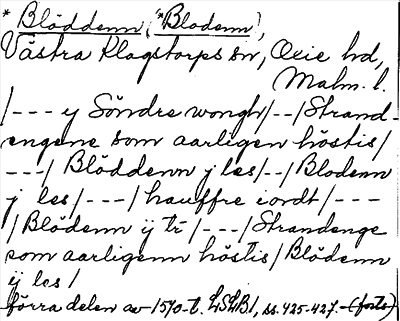 * Blöddenn ("Blodenn"),
Västra Klagstorps sn, Oxie hd,
Malm. l.
/--- y Söndre wongh/--/Strand-
engene som aarligen höstis/
---/ Blöddenn ÿ les/--/Blodenn
ÿ les/---/hauffre iordt/---
/Blödenn ÿ tr/---/Strandenge
som aarligenn höstis/Blödenn
ÿ les/
förra delen av 1570-t. LSLB1, ss. 425-427. (forts)